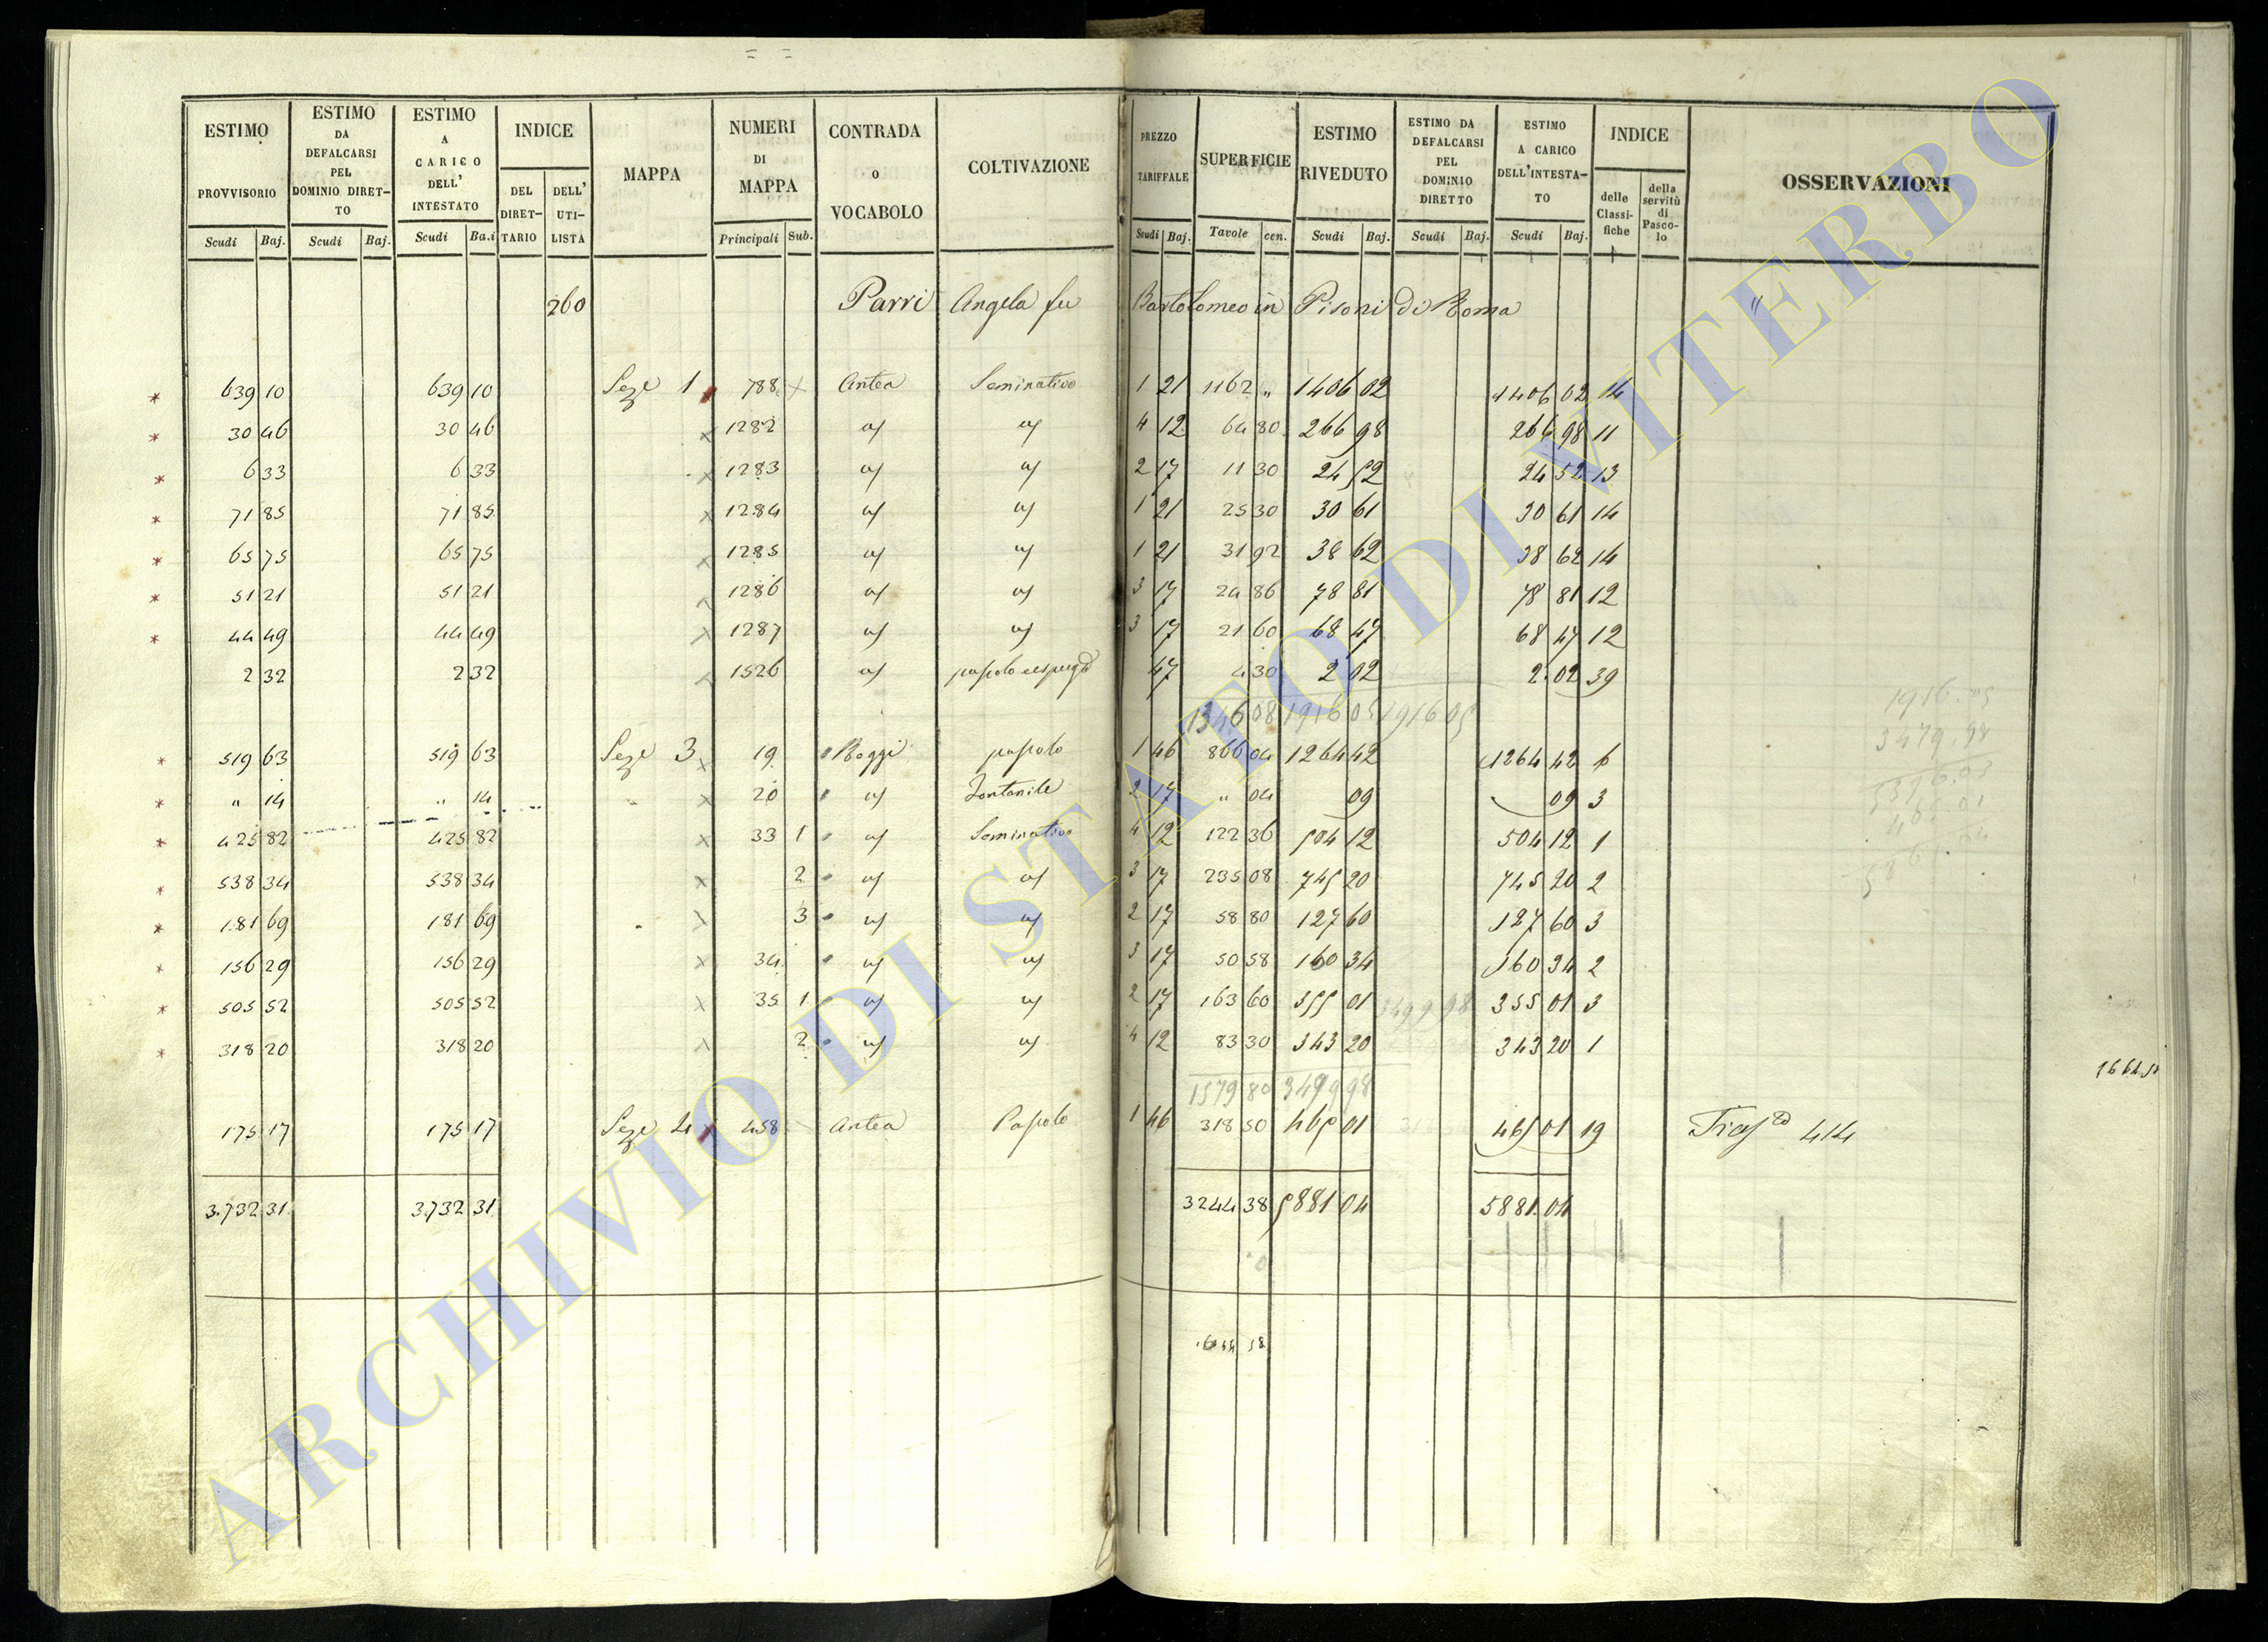 ESTIMO PROVVISORIO Scudi Baj.
ESTIMO DA DEFALCARSI PEL DOMINIO DIRET-TO Scudi Baj.
ESTIMO A CARICO DELL' INTESTATO Scudi Ba.i
INDICE DEL DIRET-TARIO DELL' UTI-LISTA
MAPPA
NUMERI DI MAPPA Principali Sub.
CONTRADA O VOCABOLO
COLTIVAZIONE
PREZZO TARIFFALE Scudi Baj.
SUPERFICIE Tavole cen.
ESTIMO RIVEDUTO Scudi Baj.
ESTIMO DA DEFALCARSI PEL DOMINIO DIRETTO Scudi Baj.
ESTIMO A CARICO DELL'INTESTA-TO Scudi Baj.
INDICE delle Classi-fiche della servitù di Pasco-lo
OSSERVAZIONI
260 Parri Angela fu Bartolomeo in Pisoni di Roma "
639 10 639 10 Seze 1 788 Antea Seminativo 1 21 1162 " 1406 02 1406 02 14
30 46 30 46 1282 4 12 64 80 266 98 266 98 11
6 33 6 33 1283 2 17 11 30 24 52 24 52 13
71 85 71 85 1284 1 21 25 30 30 61 30 61 14
65 75 65 75 1285 1 21 31 92 38 62 38 62 14
51 21 51 21 1286 3 17 24 86 78 81 78 81 12
44 49 44 49 1287 3 17 21 60 68 47 68 47 12
2 32 2 32 1526 47 4 30 2 02 2 02 39
1346 08 1916 05 1916 05
519 63 519 63 Seze 3 19 Boggi pascolo 1 46 866 04 1264 42 1264 42 6
" 14 " 14 20 Fontanile 2 17 " 04 09 09 3
425 82 425 82 33 1 Seminativo 4 12 122 36 504 12 504 12 1
538 34 538 34 2 3 17 235 08 745 20 745 20 2
181 69 181 69 3 2 17 58 80 127 60 127 60 3
156 29 156 29 34 3 17 50 58 160 34 160 34 2
505 52 505 52 35 1 2 17 163 60 355 01 3499 98 355 01 3
318 20 318 20 2 4 12 83 30 343 20 343 20 1
1579 80 3499 98
175 17 175 17 Seze 4 458 Antea Pascolo 1 46 318 50 465 01 465 01 19 414
3.732 31 3.732 31 3244 38 5881 04 5881.04
ARCHIVIO DI STATO DI VITERBO